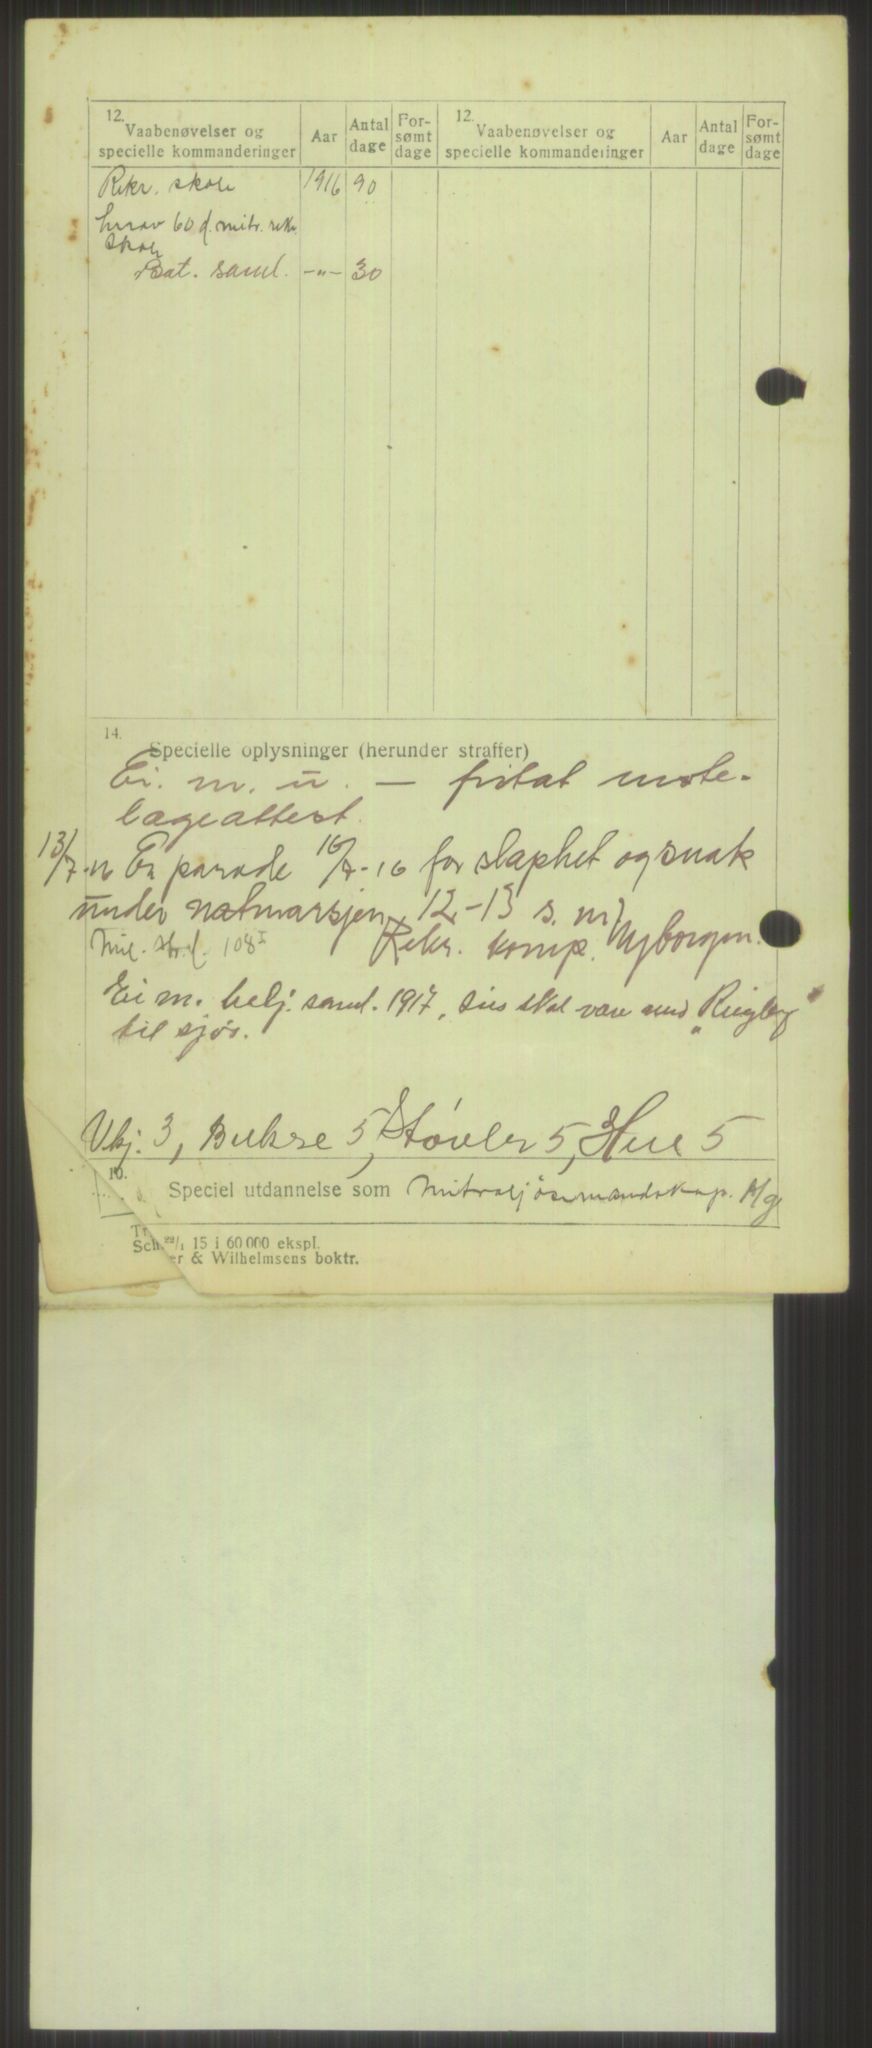 12.
Vaabenøvelser og
specielle kommanderinger
Aar
Antal
dage
For-
sømt
dage
12.
Vaabenøvelser og
specielle kommanderinger
Aar
Antal
dage
For-
sømt
dage
Rekr. skole 1916 90
herav 60 d. mitr. rekr.
skole
Bat. saml. -"- 30
14.
Specielle oplysninger (herunder straffer)
Ei. m. u. — fritat møte.
lægeattest.
13/7-16 En parade 16/7-16 for slaphet og snak
under natmarsjen 12-13 s. m.
Mil. str.l. 108
Rekr. komp. Nyborgen.
Ei m. belj. saml. 1917, sies skal være med "Ringborg"
til sjøs.
Vkj. 3, Bukse 5, Støvler 5, Hue 5
10.
Speciel utdannelse som Mitraljösemandskap. H/g
Sch. 22/1 15 i 60 000 ekspl.
er & Wilhelmsens boktr.